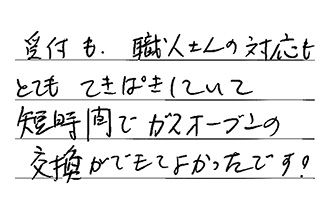 受付も、職人さんの対応も
とても てきぱきしていて
短時間でガスオーブンの
交換ができてよかったです!